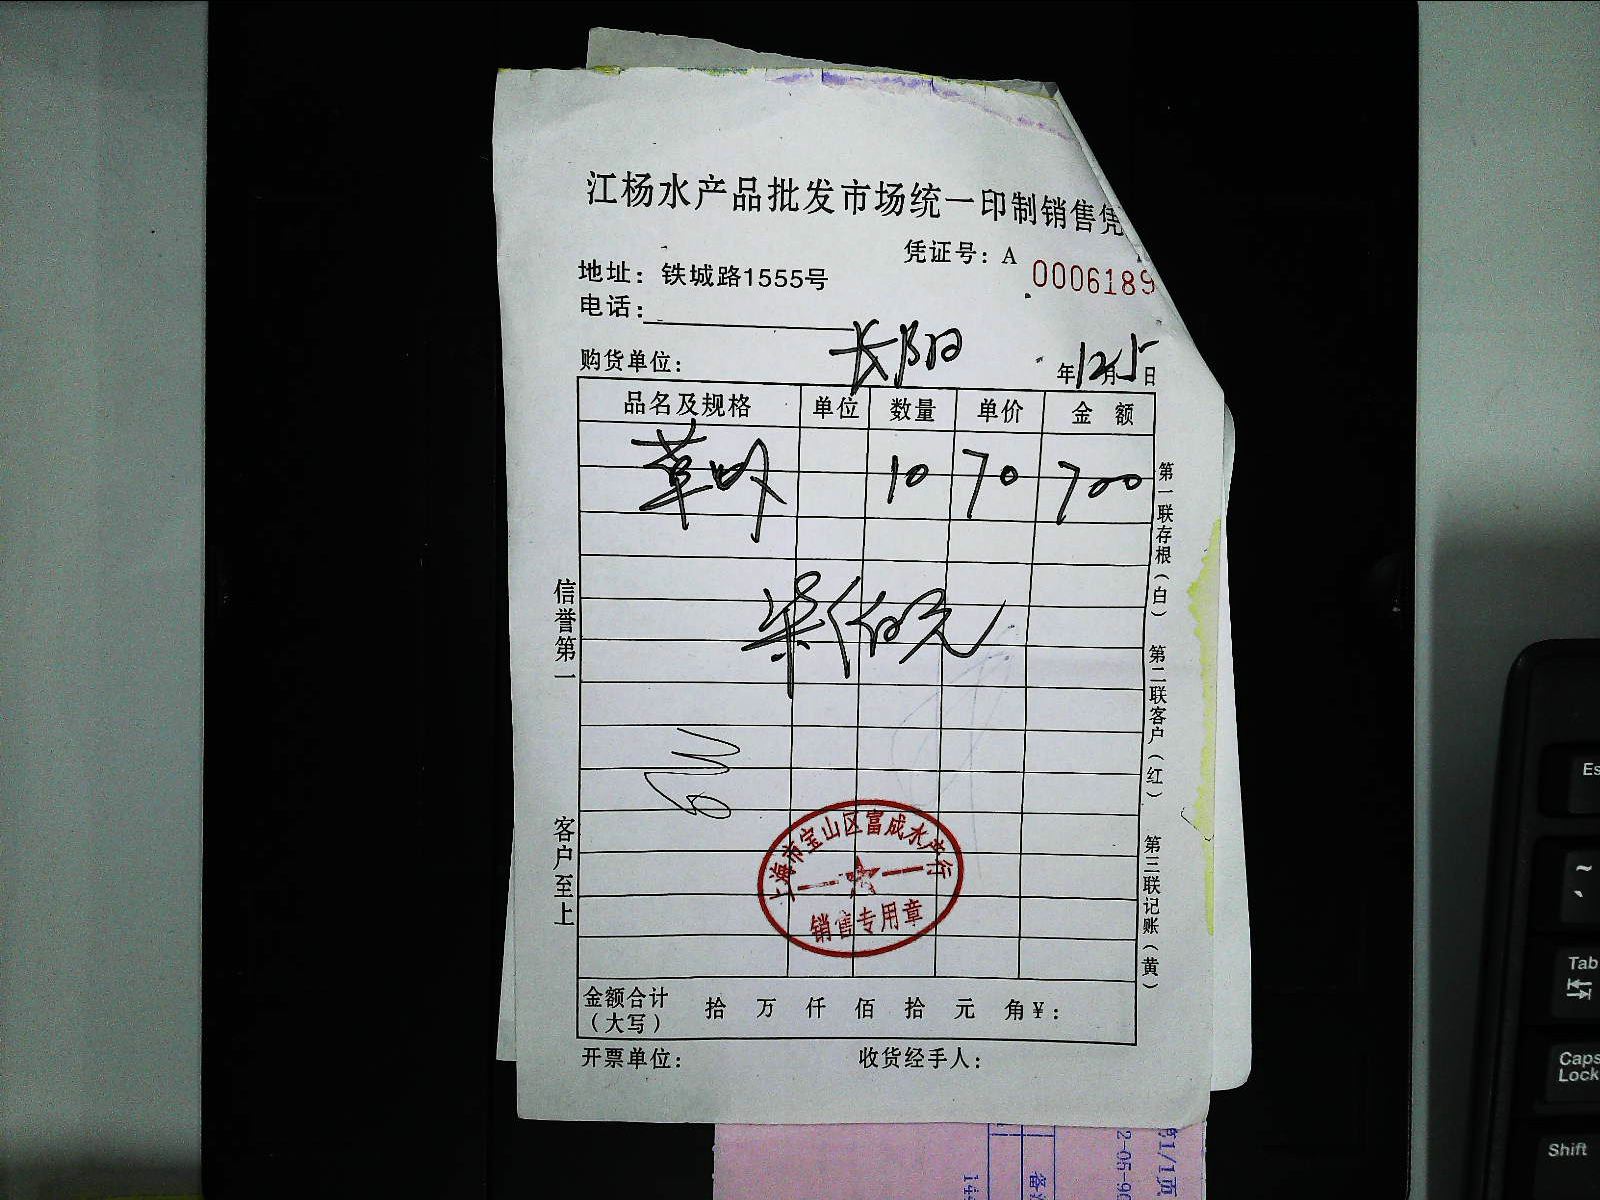 江杨水产品批发市场统一印制销售凭
凭证号：A 0006189
地址：铁城路1555号
电话：
购货单位：长阳 年12月5日
品名及规格 单位 数量 单价 金额
草虾 10 70 700
柒佰元
上海市宝山区富成水产行
销售专用章
金额合计（大写） 拾 万 仟 佰 拾 元 角 ¥：
开票单位： 收货经手人：
信誉第一
客户至上
第一联存根（白）
第二联客户（红）
第三联记账（黄）
第1/1页
2-05-90
14
Es
~
Tab
Caps Lock
Shift